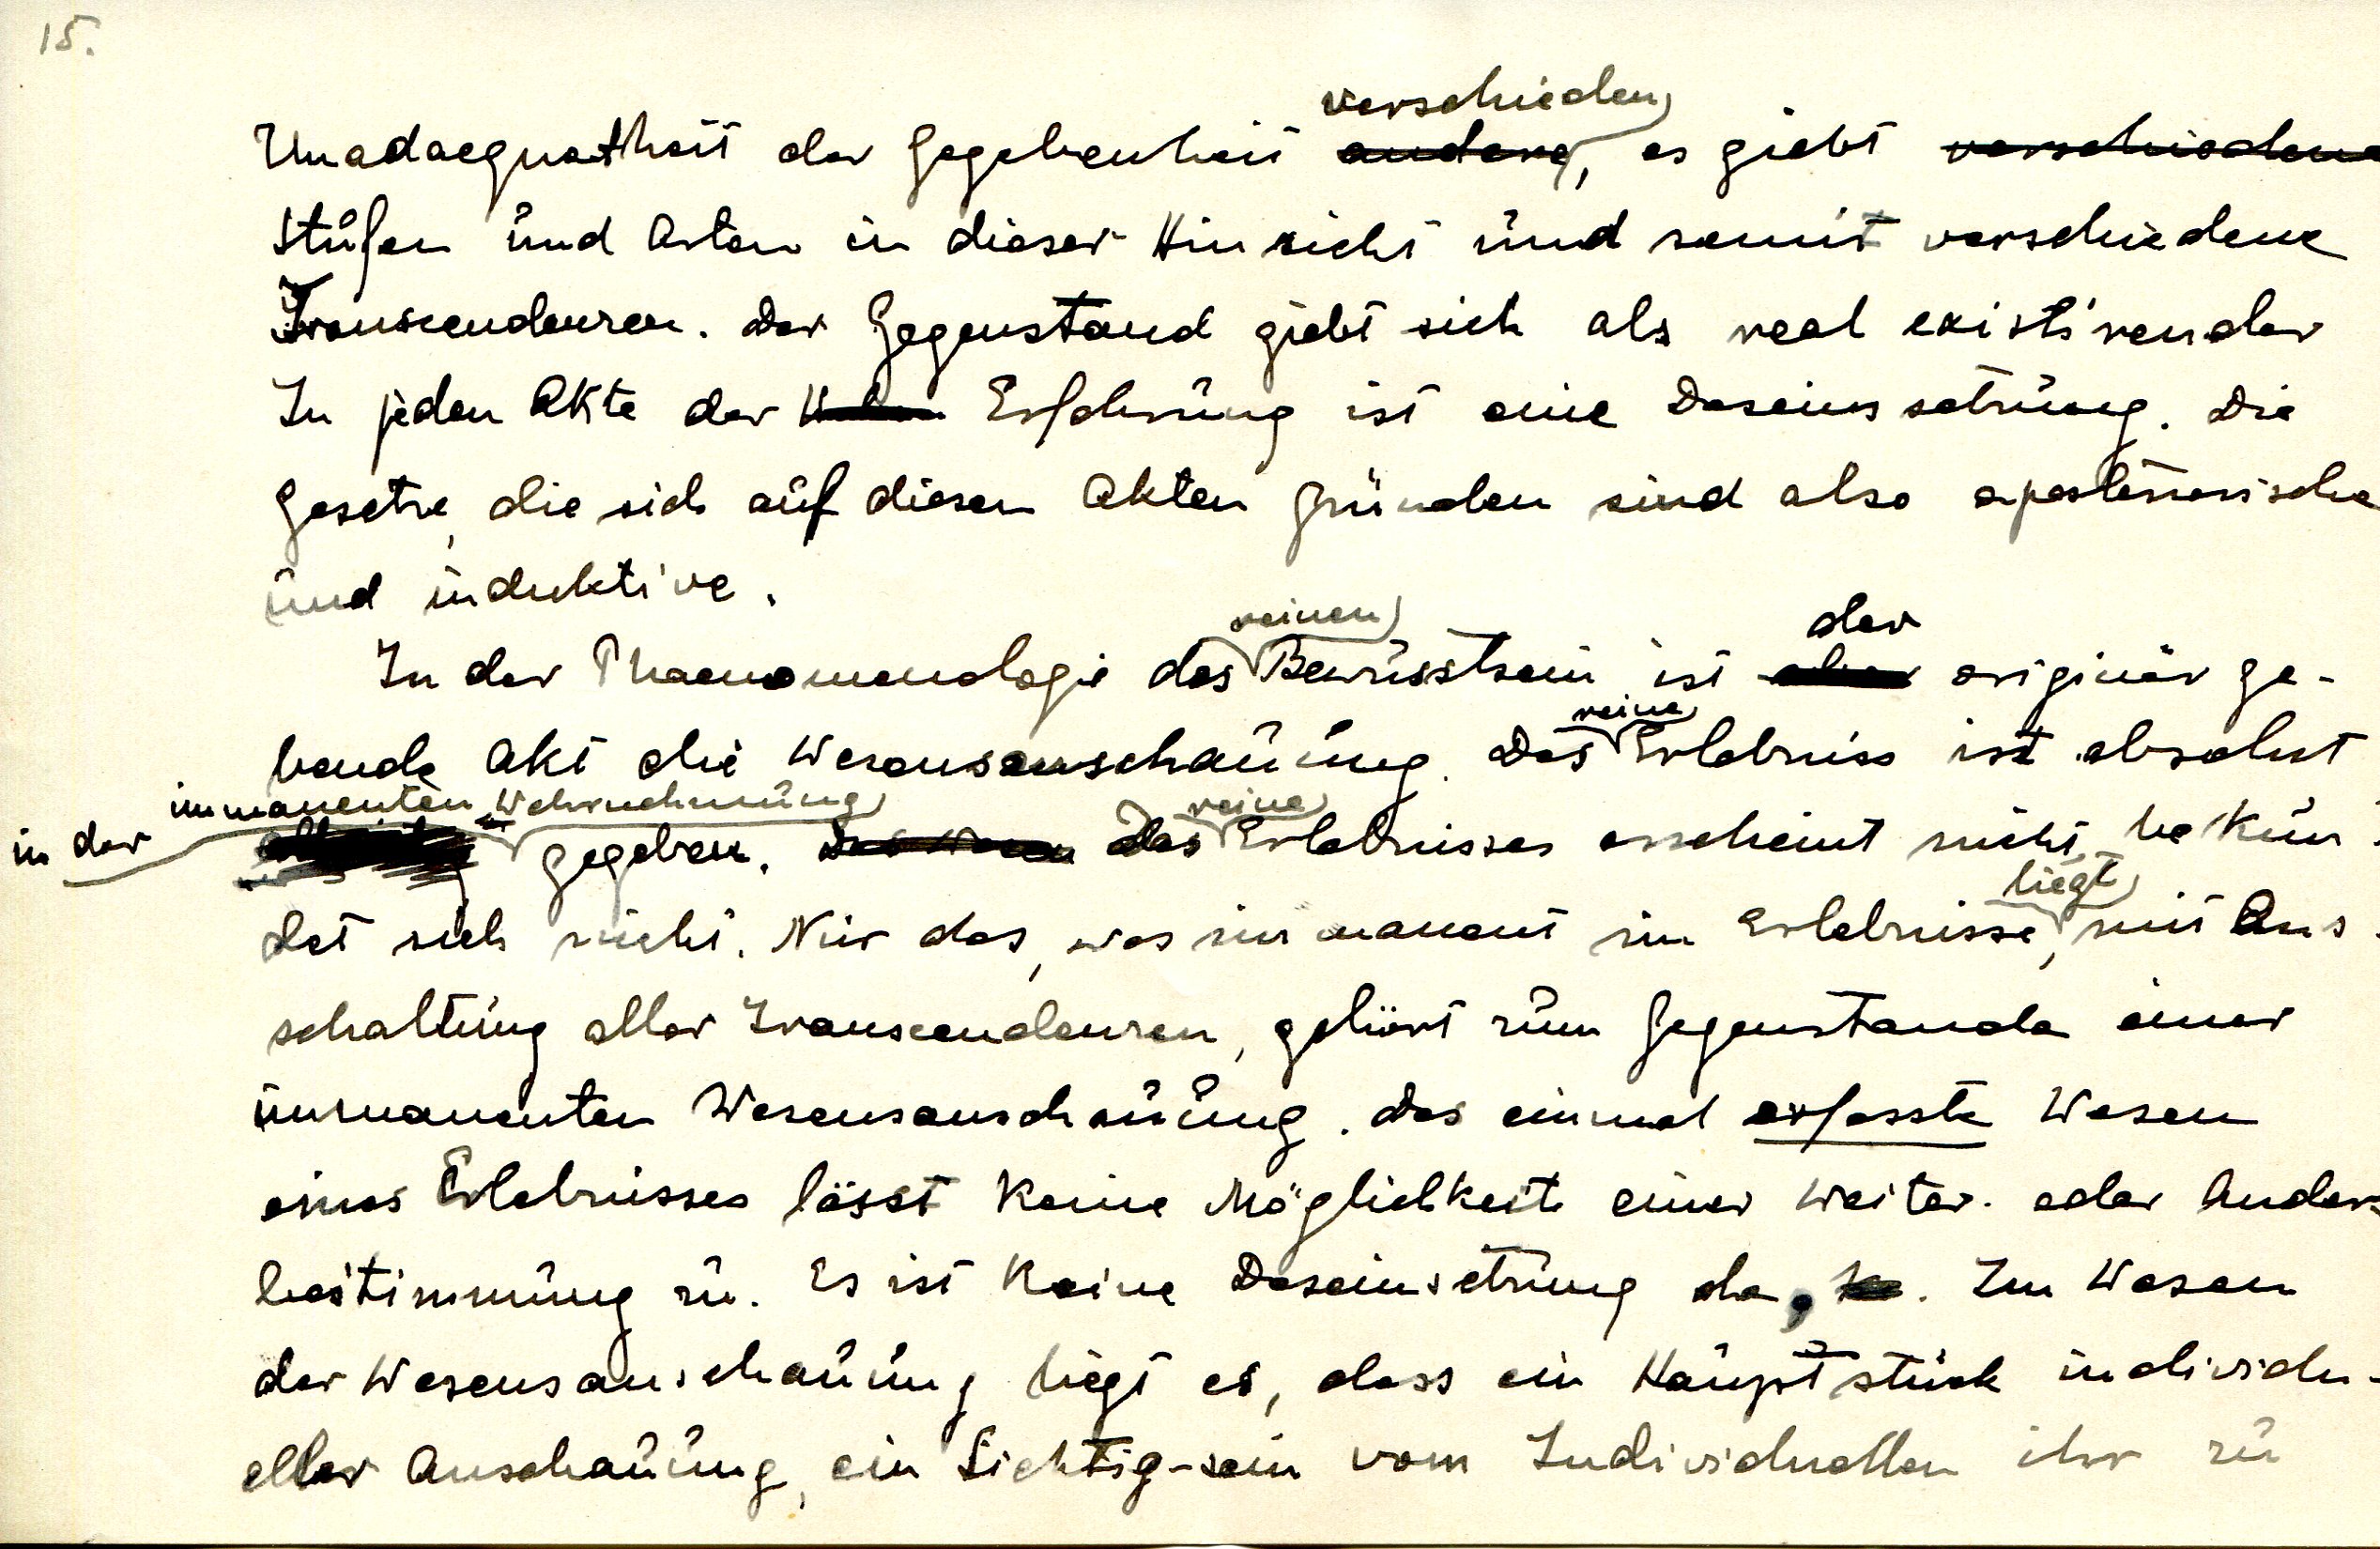 15.
verschieden
Unadaequatheit der Gegebenheit andere, es giebt verschiedene
Stufen und Arten in dieser Hinsicht und somit verschiedene
Transcendenzen. Der Gegenstand giebt sich als real existirender
In jeden Akte der Erfahrung ist eine Daseinssetzung. Die
Gesetze, die sich auf diesen Akten gründen sind also aposteriorische
und induktive.
reinen der
In der Phaenomenologie des Bewusstsein ist aber originär ge-
reine
bende Akt die Wesensanschauung. Das Erlebniss ist absolut
in der immanenten Wahrnehmung reine
gegeben. Das Wesen das Erlebnisses erscheint nicht, bekün-
liegt
det sich nicht. Nur das, was immanent im Erlebnisse, mit Aus-
schaltung aller Transcendenzen, gehört zum Gegenstande einer
immanenten Wesensanschauung. Das einmal erfasste Wesen
eines Erlebnisses lässt keine Möglichkeit einer Weiter- oder Anders
bestimmung zu. Es ist keine Daseinsetzung da. Im Wesen
der Wesensanschauung liegt es, dass ein Hauptstück individu-
eller Anschauung, ein Sichtig-sein vom Individuellen ihr zu